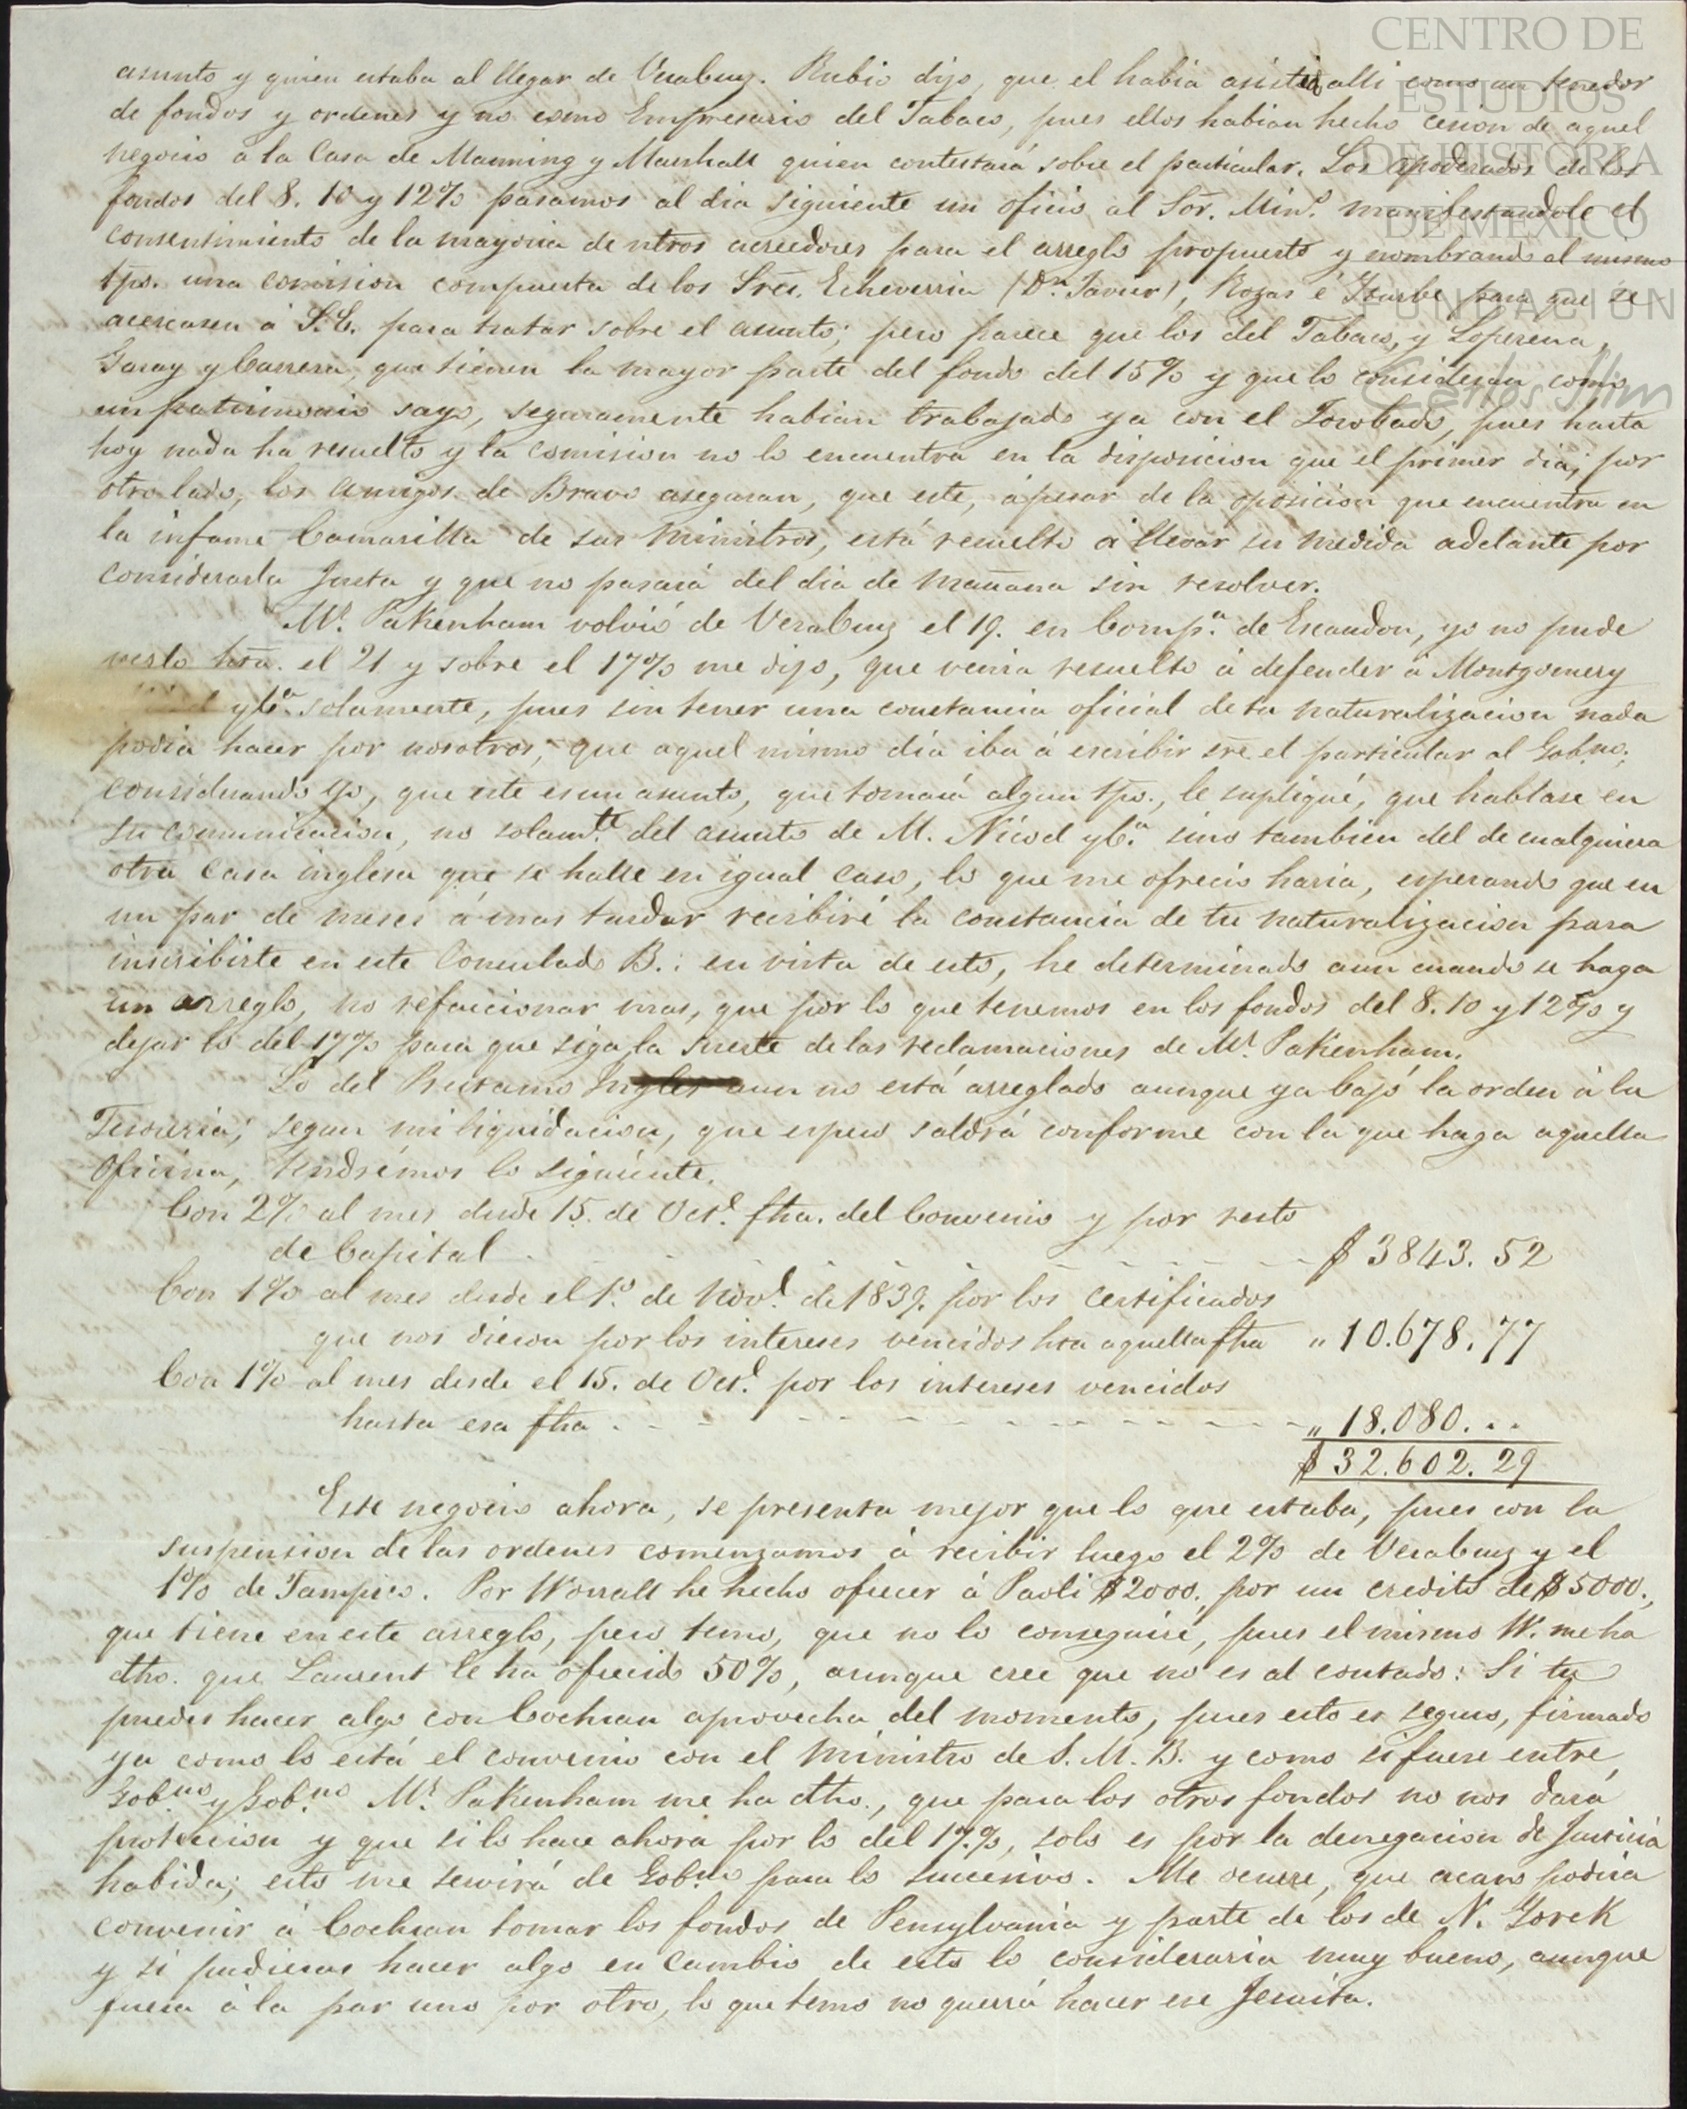 CENTRO DE
ESTUDIOS
DE HISTORIA
DE MÉXICO
FUNDACIÓN
Carlos Slim
asunto y quien estaba al llegar de VeraCruz. Rubio dijo, que el habia asistido alli como un tenedor
de fondos y ordenes y no como Empresario del Tabaco, pues ellos habian hecho cesion de aquel
negocio a la Casa de Manning y Marshall quien contestará sobre el particular. Los apoderados de los
fondos del 8. 10 y 12% pasamos al dia siguiente un oficio al Sor. Mino. manifestandole el
consentimiento de la mayoria de ntros acreedores para el arreglo propuesto y nombrando al mismo
tpo. una comision compuesta de los Sres. Echeverria (Dn. Javier), Rozas é Iturbe para que se
acercasen á S.E. para tratar sobre el asunto; pero parece que los del Tabaco, y Loperena,
Garay y Carrera, que tienen la mayor parte del fondo del 15% y que lo consideran como
un patrimonio suyo, seguramente habian trabajado ya con el Jorobado, pues hasta
hoy nada ha resuelto y la comision no lo encuentra en la disposicion que el primer dia; por
otro lado, los amigos de Bravo aseguran, que este, ápesar de la oposicion que encuentra en
la infame Camarilla de sus Ministros, está resuelto á llevar su medida adelante por
considerarla Justa y que no pasará del dia de mañana sin resolver.
Mr. Pakenham volvió de VeraCruz el 19. en Compa. de Escandon, yo no pude
verlo hta. el 21 y sobre el 17% me dijo, que venia resuelto á defender á Montgomery
yCa. solamente, pues sin tener una constancia oficial de tu naturalizacion nada
podia hacer por nosotros, que aquel mismo dia iba á escribir sre el particular al Gobno.;
considerando yo, que este es un asunto, que tomará algun tpo., le supliqué, que hablase en
su comunicacion, no solamte. del asunto de M. Nicod yCa. sino tambien del de cualquiera
otra Casa inglesa que se halle en igual caso, lo que me ofrecio haria, esperando que en
un par de meses á mas tardar recibiré la constancia de tu naturalizacion para
inscribirte en este Consulado B.: en vista de esto, he determinado aun cuando se haga
un arreglo, no refaccionar mas, que por lo que tenemos en los fondos del 8. 10 y 12% y
dejar lo del 17% para que siga la suerte de las reclamaciones de Mr. Pakenham.
Lo del Prestamo Ingles aun no está arreglado aunque ya bajó la orden á la
Tesoreria; segun mi liquidacion, que espero saldrá conforme con la que haga aquella
Oficina, tendrémos lo siguiente.
Con 2% al mes desde 15. de Oce. fha. del Convenio y por resto
de Capital - - - - - - $ 3843. 52
Con 1% al mes desde el 1o. de Nove. de 1839. por los certificados
que nos dieron por los intereses vencidos hta aquella fha " 10.678. 77
Con 1% al mes desde el 15. de Oce. por los intereses vencidos
hasta esa fha . - - - - - - - " 18.080. . .
$ 32.602. 29
Este negocio ahora, se presenta mejor que lo que estaba, pues con la
suspension de las ordenes comenzamos á recibir luego el 2% de VeraCruz y el
1% de Tampico. Por Worrall he hecho ofrecer á Paoli $2000. por un credito de $5000.,
que tiene en este arreglo, pero temo, que no lo conseguiré, pues el mismo W. me ha
dho. que Laurent le ha ofrecido 50%, aunque cree que no es al contado: Si tu
puedes hacer algo con Cochran aprovecha del momento, pues esto es seguro, firmado
ya como lo está el convenio con el Ministro de S. M. B. y como si fuese entre
Gobno y Gobno. Mr. Pakenham me ha dho., que para los otros fondos no nos dará
proteccion y que si lo hace ahora por lo del 17.%, solo es por la denegacion de Justicia
habida; esto me servirá de Gobno para lo sucesivo. Me ocurre, que acaso podria
convenir á Cochran tomar los fondos de Pensylvania y parte de los de N. Yorck
y si pudieras hacer algo en cambio de esto lo consideraria muy bueno, aunque
fuera á la par uno por otro, lo que temo no querrá hacer ese Jesuita.